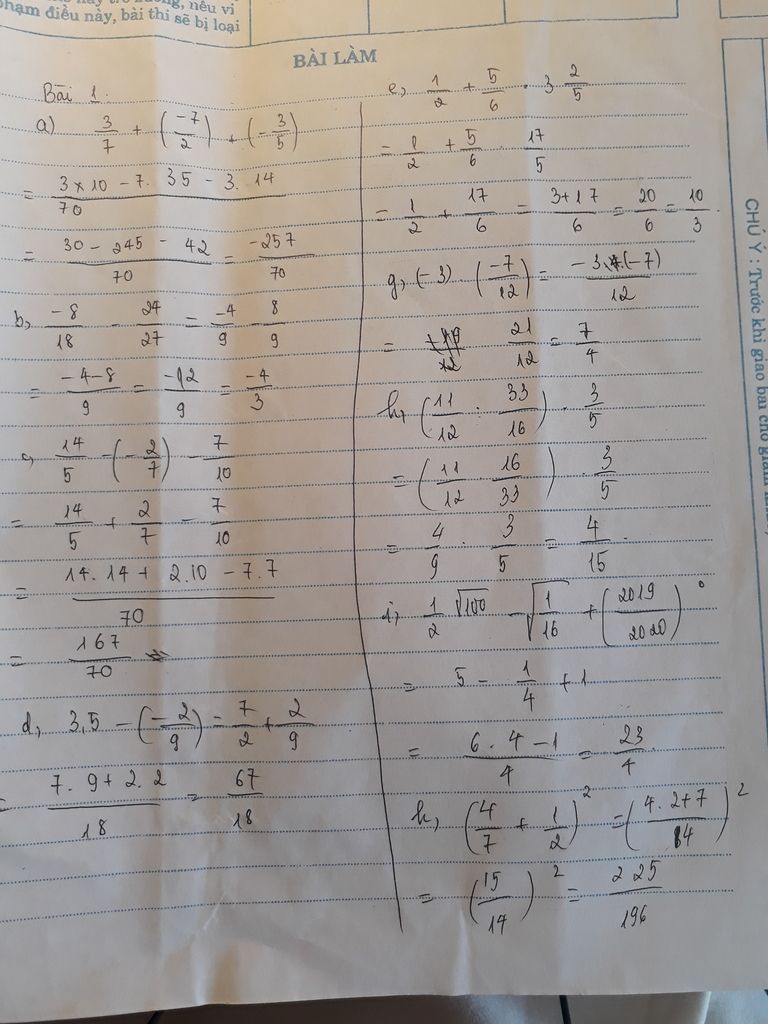 phạm điều này, bài thi sẽ bị loại
BÀI LÀM
Bài 1.
a) 3/7 + (-7/2) + (-3/5)
= (3 x 10 - 7. 35 - 3. 14)/70
= (30 - 245 - 42)/70 = -257/70
b, -8/18 - 24/27 = -4/9 - 8/9
= (-4-8)/9 = -12/9 = -4/3
c, 14/5 - (-2/7) - 7/10
= 14/5 + 2/7 - 7/10
= (14. 14 + 2.10 - 7.7)/70
= 167/70
d, 3,5 - (-2/9) = 7/2 + 2/9
= (7. 9 + 2. 2)/18 = 67/18
e, 1/2 + 5/6 . 3 2/5
= 1/2 + 5/6 . 17/5
= 1/2 + 17/6 = (3+17)/6 = 20/6 = 10/3.
g, (-3) . (-7/12) = (-3.(-7))/12
= 21/12 = 7/4
h, (11/12 : 33/16) . 3/5
= (11/12 . 16/33) . 3/5
= 4/9 . 3/5 = 4/15.
i, 1/2 √100 - √(1/16) + (2019/2020)^0
= 5 - 1/4 + 1
= (6. 4 - 1)/4 = 23/4.
k, (4/7 + 1/2)^2 = ((4. 2+7)/14)^2
= (15/14)^2 = 225/196
CHÚ Ý : Trước khi giao bài cho giám